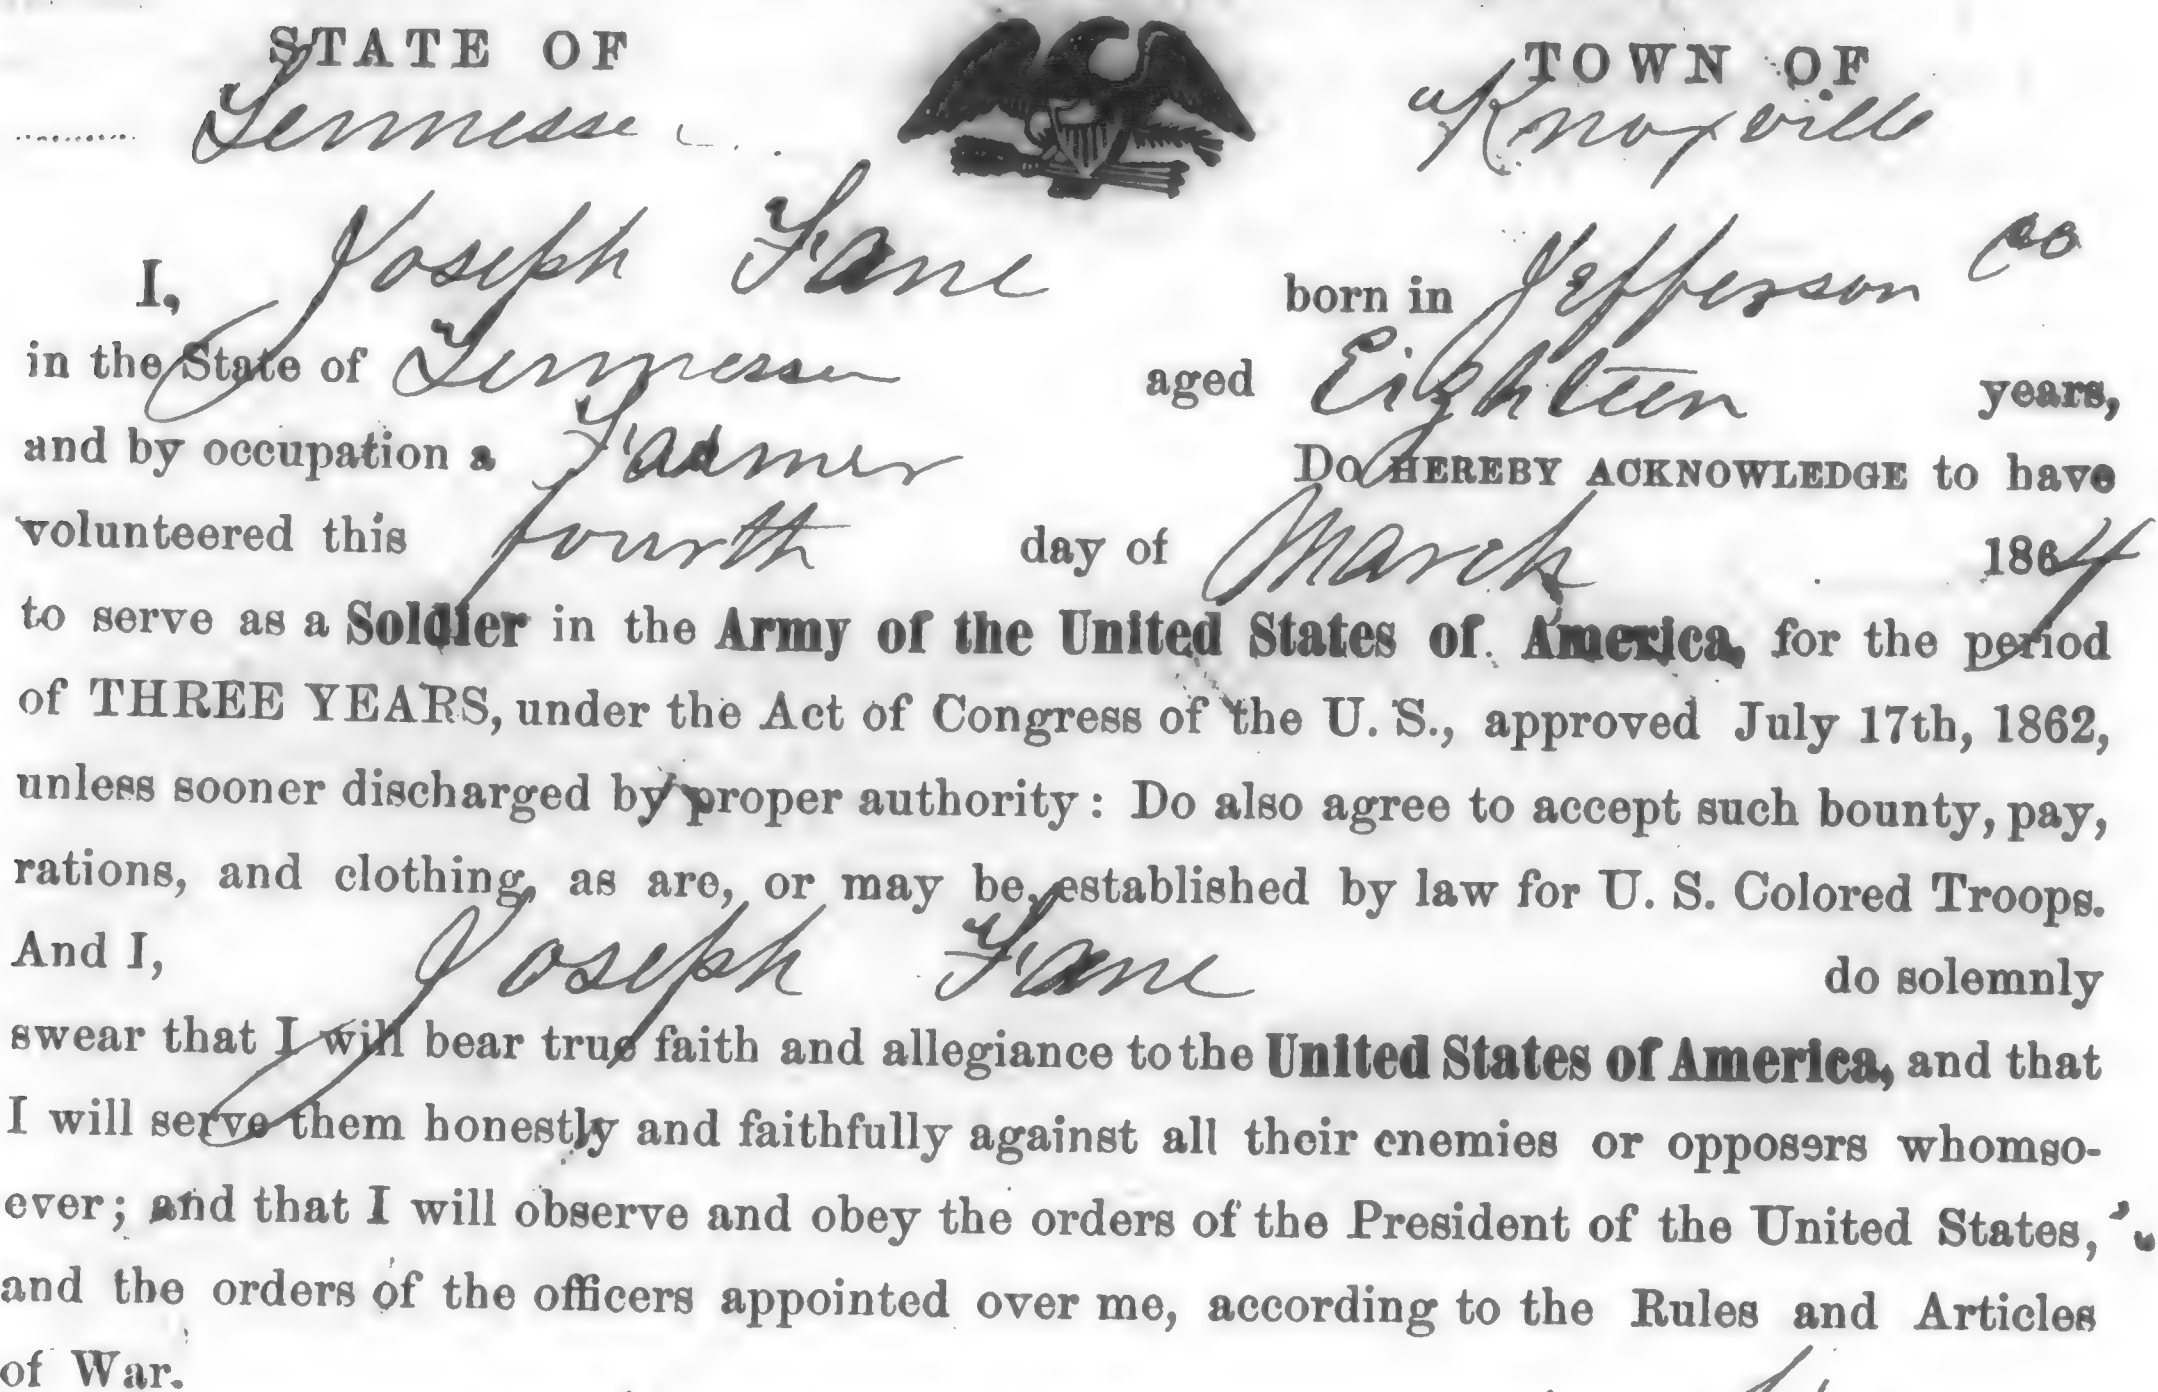 STATE OF TOWN OF
Tennesse Knoxville
I, Joseph Fane born in Jefferson Co
in the State of Tennessee aged Eighteen years,
and by occupation a Farmer Do HEREBY ACKNOWLEDGE to have
volunteered this fourth day of March 1864
to serve as a Soldier in the Army of the United States of America, for the period
of THREE YEARS, under the Act of Congress of the U. S., approved July 17th, 1862,
unless sooner discharged by proper authority: Do also agree to accept such bounty, pay,
rations, and clothing, as are, or may be, established by law for U. S. Colored Troops.
And I, Joseph Fane do solemnly
swear that I will bear true faith and allegiance to the United States of America, and that
I will serve them honestly and faithfully against all their enemies or opposers whomso-
ever; and that I will observe and obey the orders of the President of the United States,
and the orders of the officers appointed over me, according to the Rules and Articles
of War.